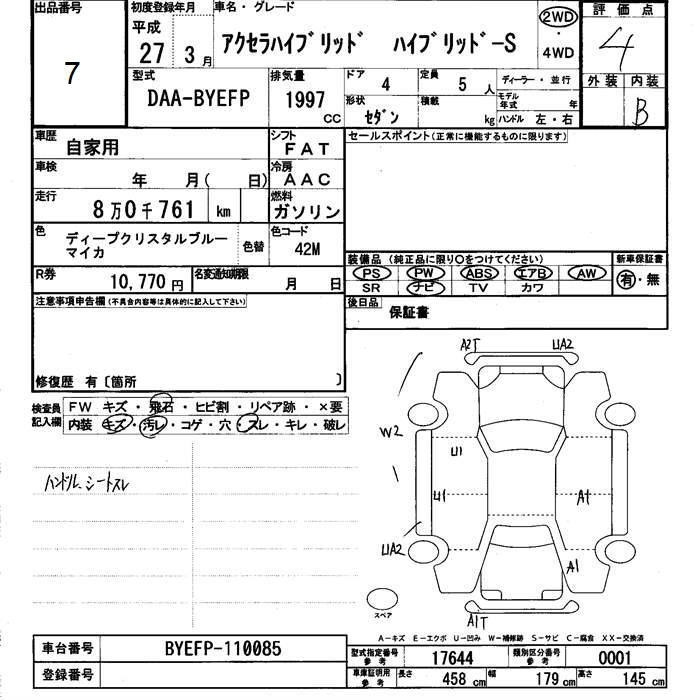 出品番号
7
初度登録年月
平成
27 3月
車名・グレード
アクセラハイブリッド ハイブリッド-S
2WD
・
4WD
評価点
4
外装 内装
B
型式
DAA-BYEFP
排気量
1997
CC
ドア
4
定員
5 人
形状
セダン
積載
kg
ディーラー・並行
モデル年式 年
ハンドル 左・右
車歴
自家用
シフト
FAT
車検
年 月( 日)
冷房
AAC
走行
8万0千761 km
燃料
ガソリン
色
ディープクリスタルブルー
マイカ
色替
色コード
42M
R券
10,770円
名変通知期限
月 日
セールスポイント(正常に機能するものに限ります)
装備品 (純正品に限り○をつけてください)
PS PW ABS エアB AW
SR ナビ TV カワ
新車保証書
有・無
後日品
保証書
注意事項申告欄(不具合内容等は具体的に記入して下さい)
修復歴 有〔箇所 〕
検査員
記入欄
FW キズ・飛石・ヒビ割・リペア跡・×要
内装 キズ・汚レ・コゲ・穴・スレ・キレ・破レ
ハンドル、シートスレ
A2T
UA2
W2
U1
U1
A1
UA2
A1
スペア
A1T
A-キズ E-エクボ U-凹み W-補修跡 S-サビ C-腐食 XX-交換済
車台番号
BYEFP-110085
登録番号
型式指定番号
参考
17644
類別区分番号
参考
0001
車庫証明用
参考
長さ
458 cm
幅
179 cm
高さ
145 cm